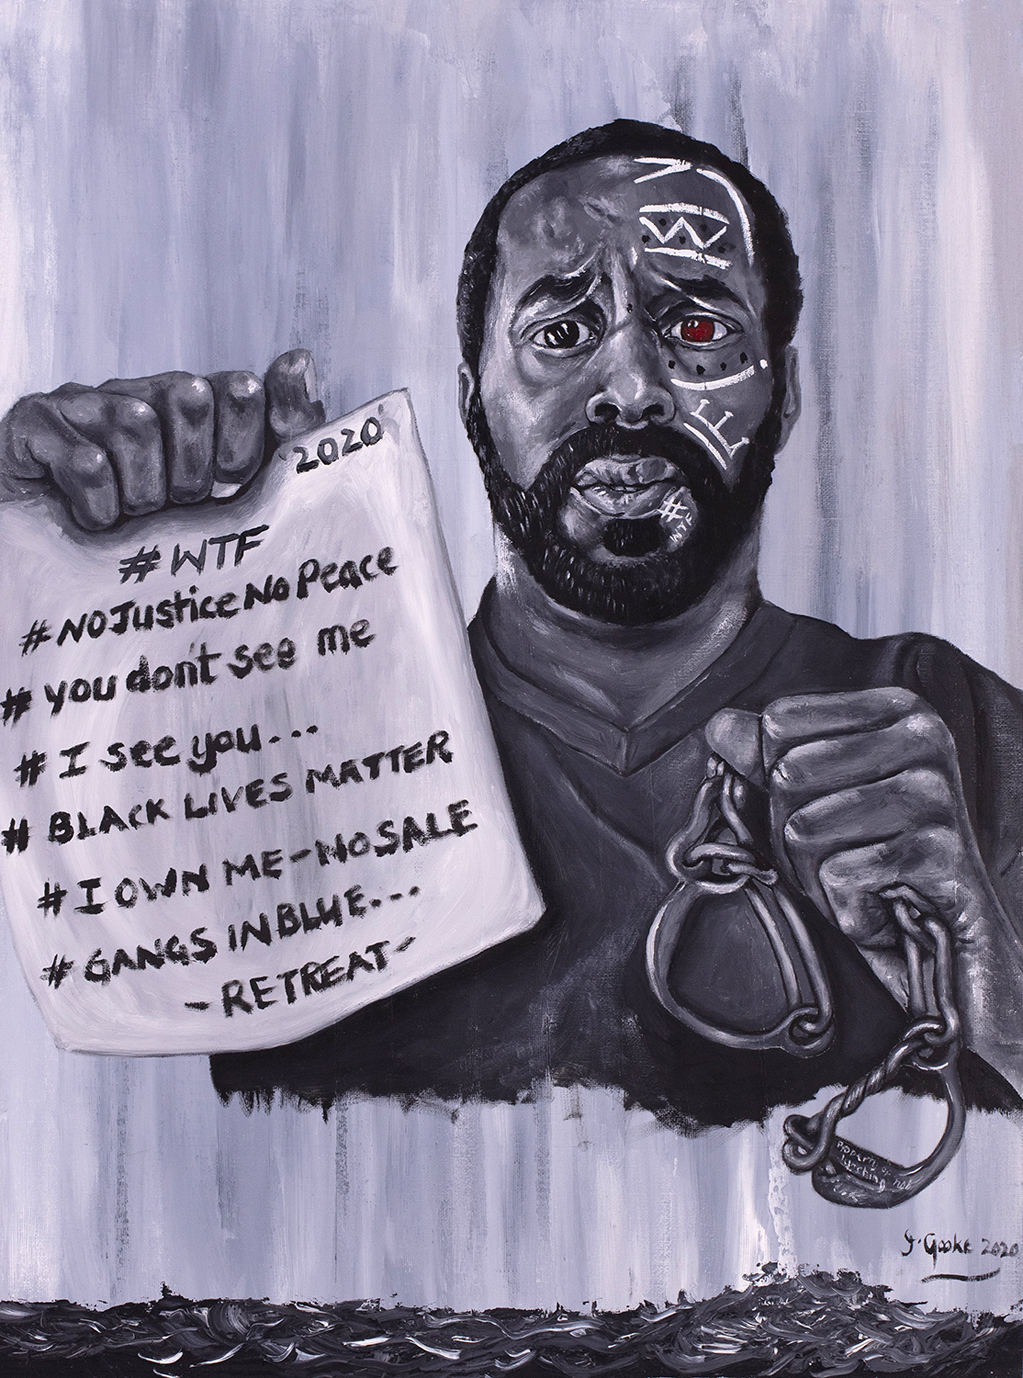 2020
#WTF
#NOJusticeNoPeace
# you don't see me
# I see you...
# BLACK LIVES MATTER
# I OWN ME-NO SALE
# GANGS IN BLUE...
-RETREAT-
#
WTF
Property of
lynching
2020